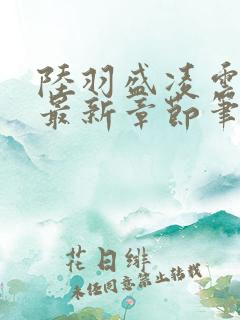 陸羽盛凌雲
最新章節筆
花日緋
未经同意禁止转载